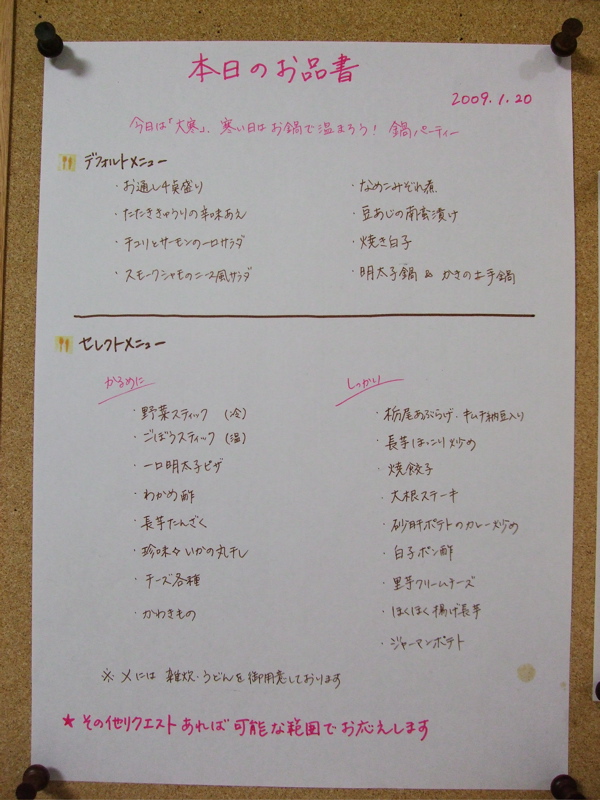 本日のお品書
2009.1.20
今日は「大寒」、寒い日はお鍋で温まろう! 鍋パーティー
デフォルトメニュー
・お通し4貞盛り
・たたききゅうりの辛味あえ
・チコリとサーモンの一口サラダ
・スモークシャモのニース風サラダ
・なめこみぞれ煮
・豆あじの南蛮漬け
・焼き白子
・明太子鍋 & かきの土手鍋
セレクトメニュー
かるめに
・野菜スティック (冷)
・ごぼうスティック (温)
・一口明太子ピザ
・わかめ酢
・長芋たんざく
・珍味々 いかの丸干し
・チーズ各種
・かわきもの
しっかり
・栃尾あぶらげ・キムチ納豆入り
・長芋ほっこり炒め
・焼餃子
・大根ステーキ
・砂肝ポテトのカレー炒め
・白子ポン酢
・里芋クリームチーズ
・ほくほく揚げ長芋
・ジャーマンポテト
※〆には 雑炊・うどんを御用意しております
★その他リクエストあれば可能な範囲でお応えします